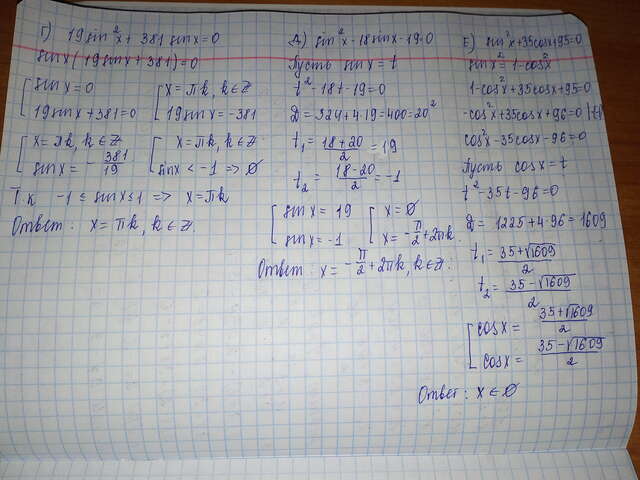 Г) 19sin²x + 381 sinx = 0
sinx(19sinx + 381) = 0
[ sinx = 0
19sinx + 381 = 0
[ x = πk, k∈Z
19sinx = -381
[ x = πk, k∈Z
sinx = -381/19
[ x = πk, k∈Z
sinx < -1 => ∅
Т.к -1 ≤ sinx ≤ 1 => x = πk
Ответ: x = πk, k∈Z.
Д) sin²x - 18sinx - 19 = 0
Пусть sinx = t
t² - 18t - 19 = 0
Д = 324 + 4·19 = 400 = 20²
t₁ = (18+20)/2 = 19
t₂ = (18-20)/2 = -1
[ sinx = 19
sinx = -1
[ x = ∅
x = -π/2 + 2πk
Ответ: x = -π/2 + 2πk, k∈Z.
Е) sin²x + 35cosx + 95 = 0
sinx² = 1 - cos²
1 - cos²x + 35cosx + 95 = 0
-cos²x + 35cosx + 96 = 0
cos²x - 35cosx - 96 = 0
Пусть cosx = t
t² - 35t - 96 = 0
Д = 1225 + 4·96 = 1609
t₁ = (35+√1609)/2
t₂ = (35-√1609)/2
[ cosx = (35+√1609)/2
cosx = (35-√1609)/2
Ответ: x ∈ ∅